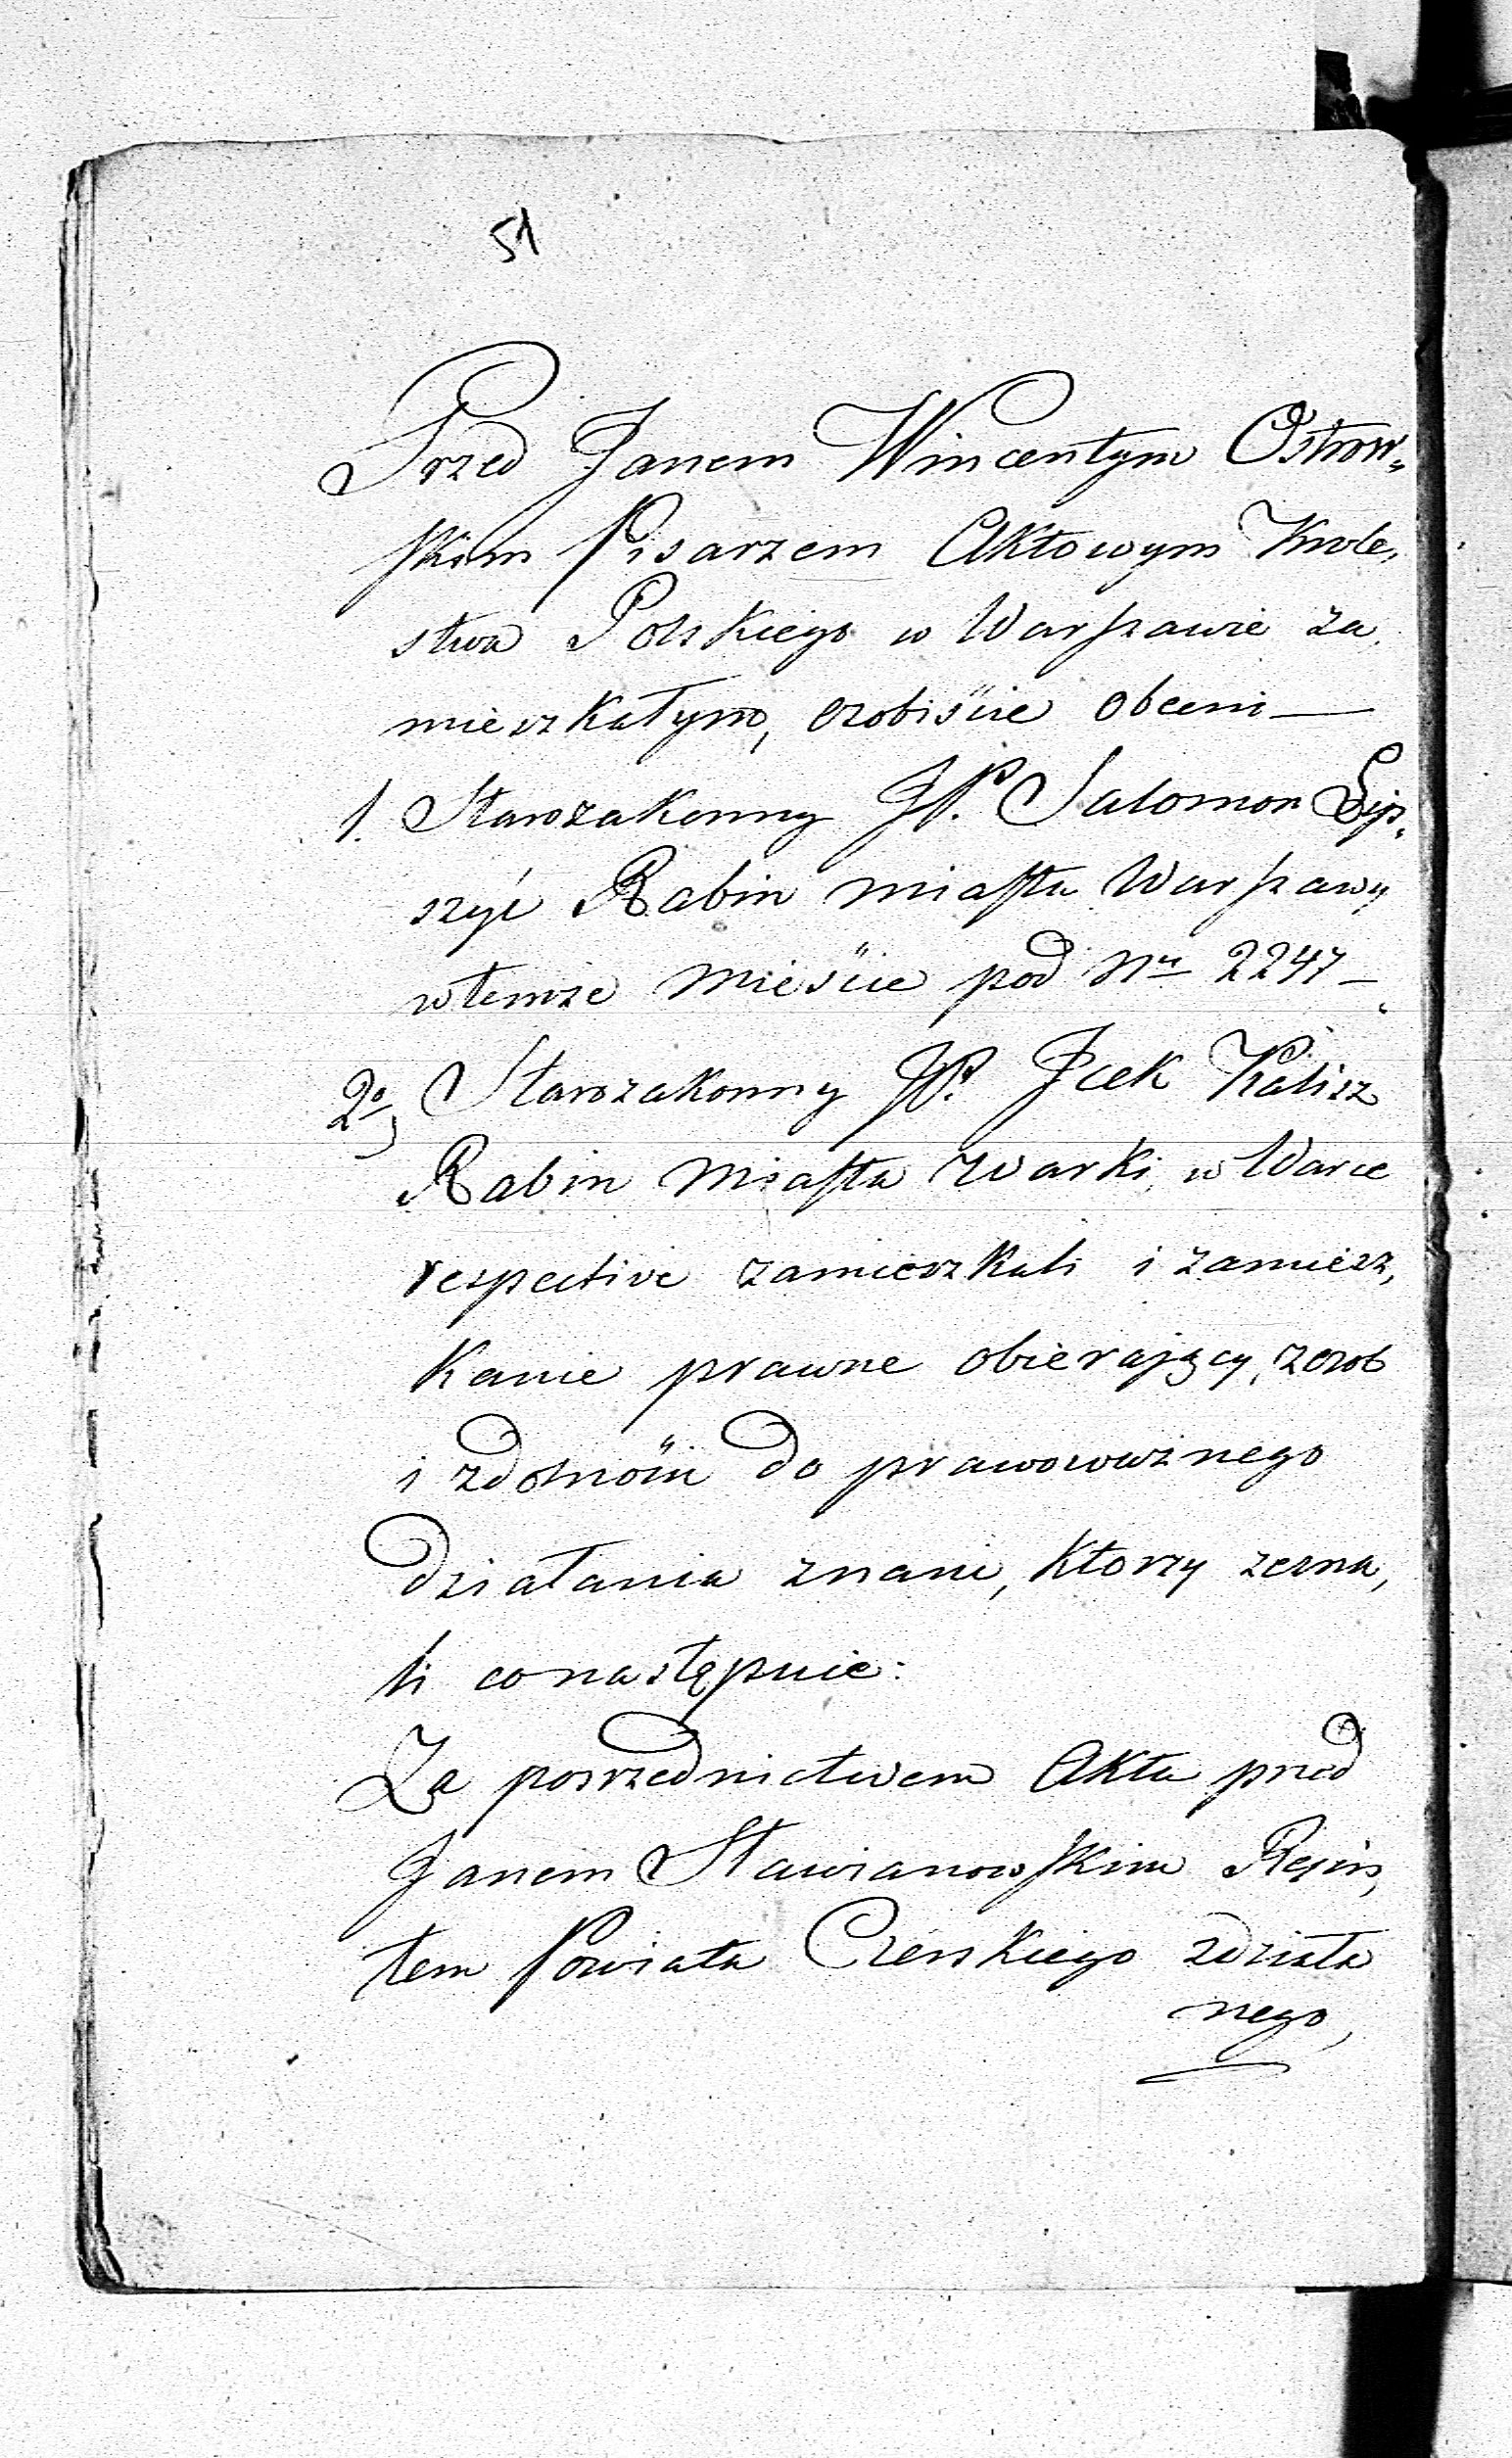 51
Przed Janem Wincentym Ostrow„
skim Pisarzem Aktowym Krole,
stwa Polskiego w Warszawie za,
mieszkałym, osobiście obecni —
1. Starozakonny JP. Salomon Lip,
szyc Rabin miasta Warszawy
w temże mieście pod Nrm 2247 —
2o) Starozakonny JP. Icek Kalisz
Rabin Miasta Warki, w Warce
respective zamieszkali i zamiesz,
kanie prawne obierający, z osob
i zdolności do prawoważnego
działania znani, ktorzy zezna,
li co następuie:
Za posrzednictwem Aktu przed
Janem Sławianowskim Rejen,
tem Powiatu Czerskiego zdziała
nego,